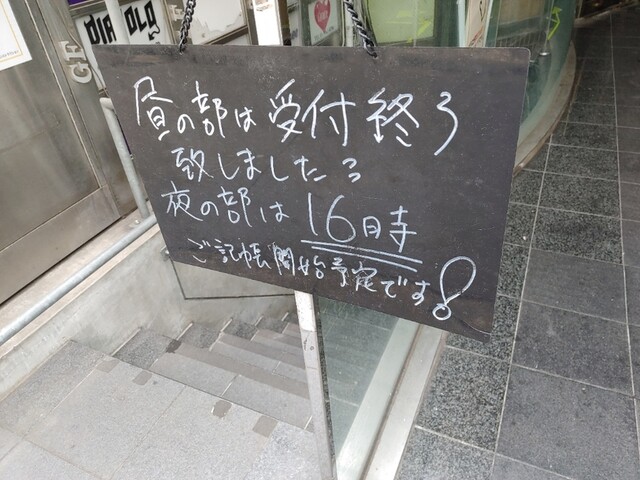 昼の部は受付終了
致しました。
夜の部は16時
ご記帳開始予定です!
DIABLO